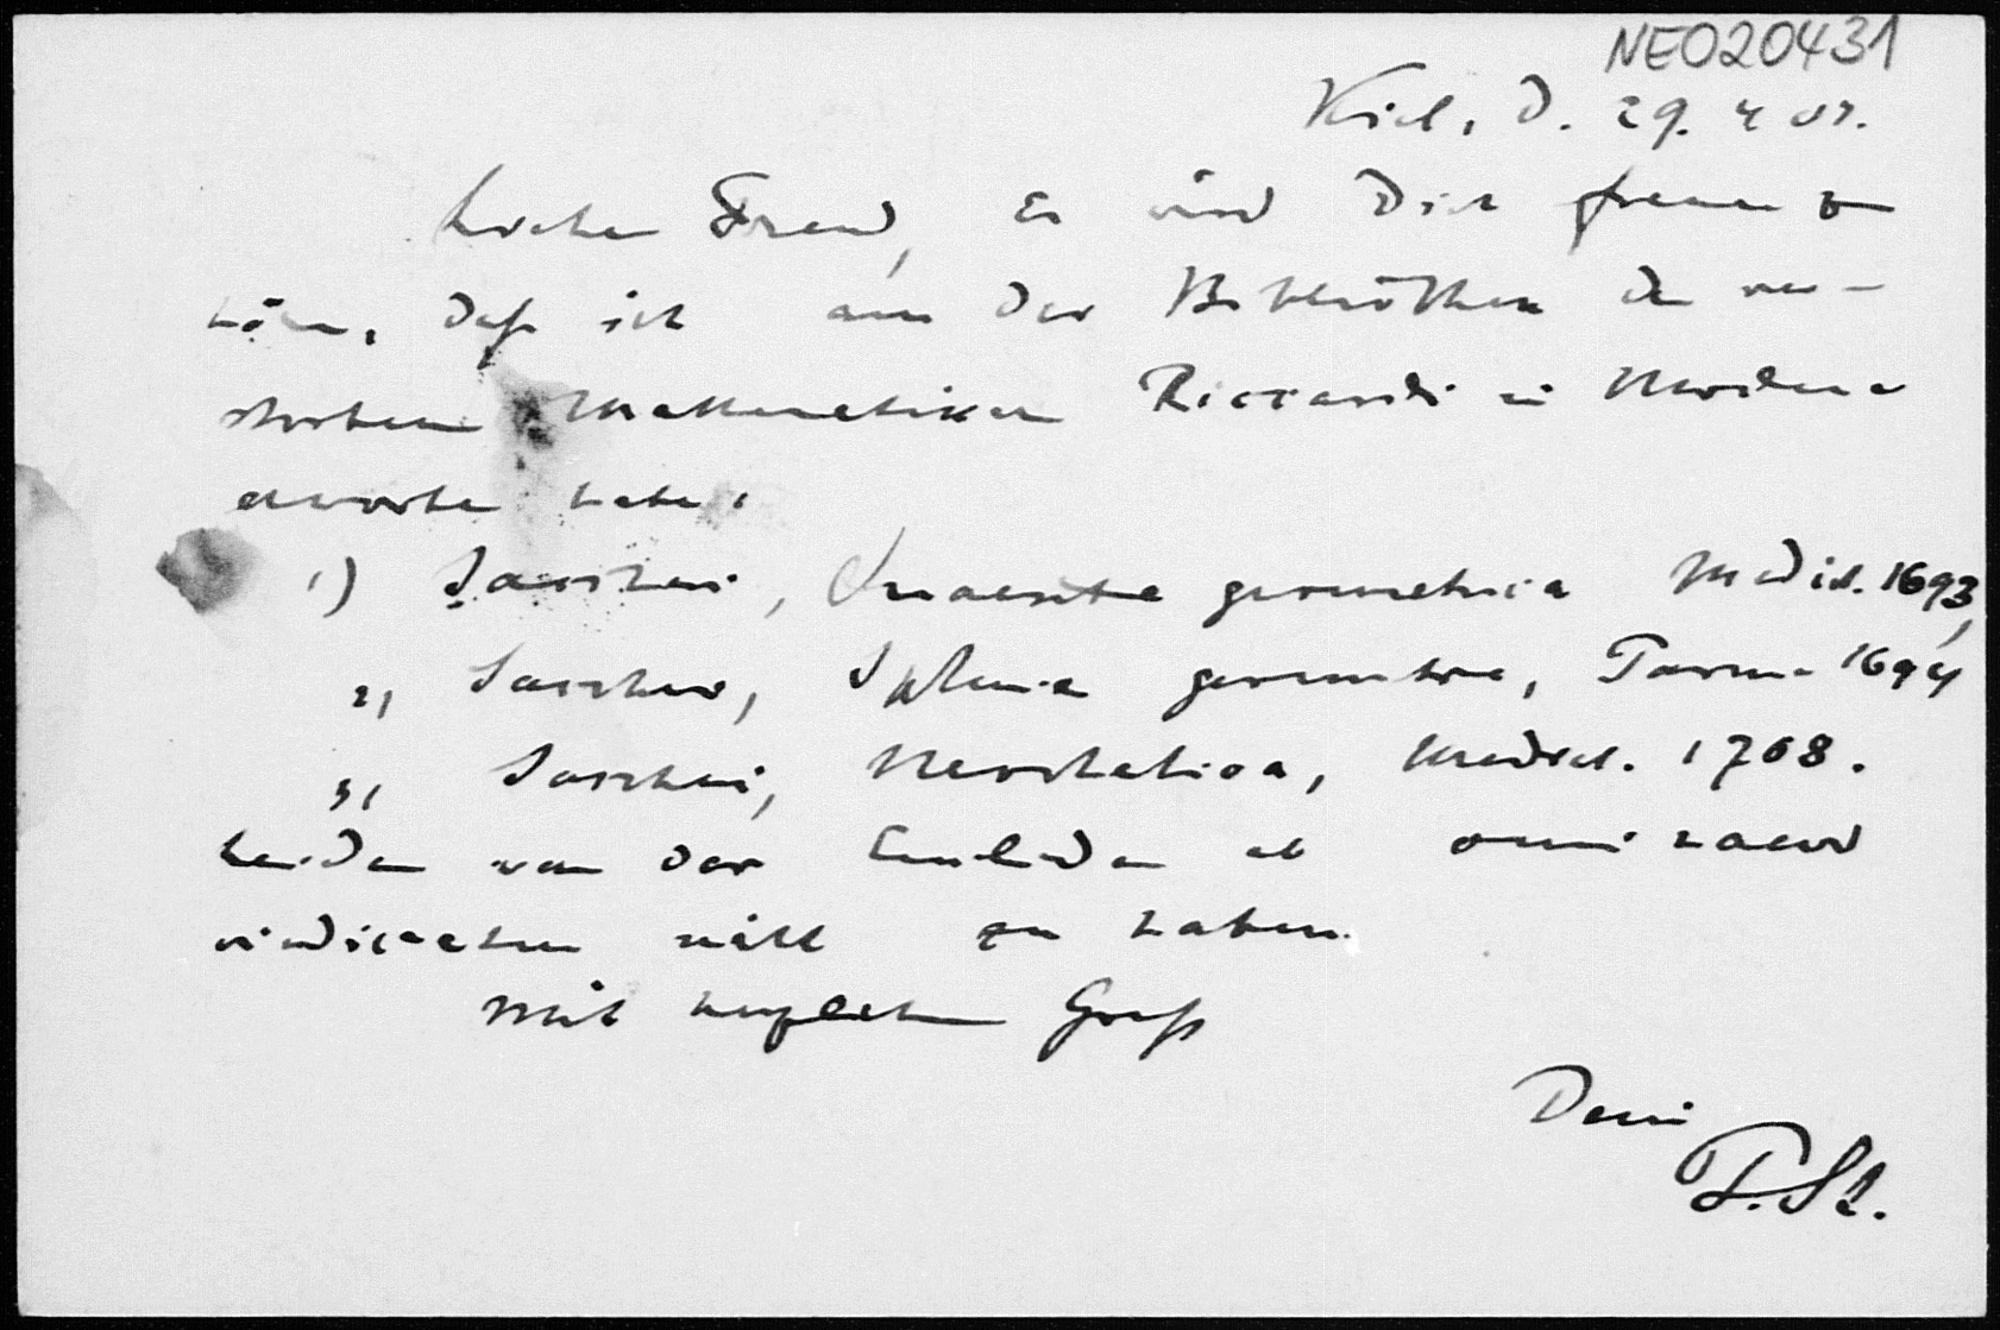 NE020431
Kiel, d. 29. 4 07.
Lieber Freund, Es wird Dich freuen zu
hören, daß ich aus der Bibliothek des ver-
storbenen Mathematikers Riccardi in Modena
erworben habe:
1) Saccheri, Quaesita geometrica Mediol. 1693,
2, Saccheri, Sphinx geometra, Parma 1694
3, Saccheri, Neostatica, Mediol. 1708.
Leider war der Euclides ab omni naevo
vindicatus nicht zu haben.
Mit herzlichem Gruß
Dein
P. St.